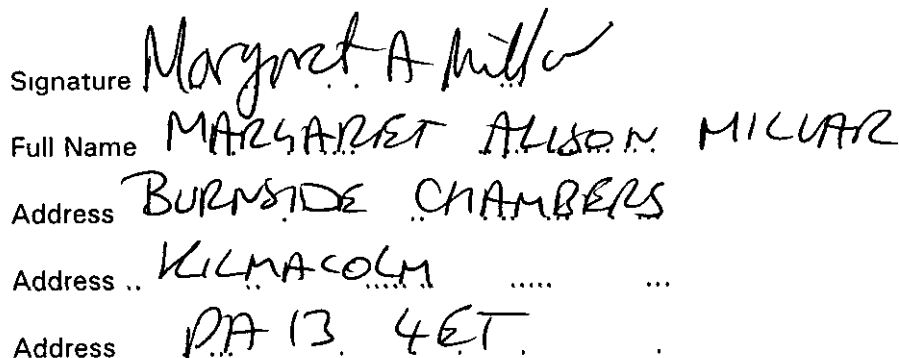 Signature Margaret A Millar
Full Name MARGARET ALISON MILLAR
Address BURNSIDE CHAMBERS
Address .. KILMACOLM ..... ...
Address PA 13 4ET